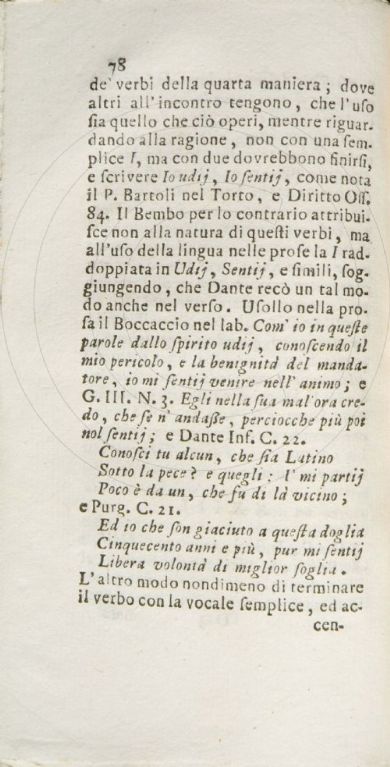 78
de' verbi della quarta maniera ; dove
altri all' incontro tengono , che l' uſo
ſia quello che ciò operi, mentre riguar-
dando alla ragione , non con una ſem-
plice I, ma con due dovrebbono finirſi,
e ſcrivere Io udij , Io ſentij , come nota
il P. Bartoli nel Torto, e Diritto Oſſ.
84. Il Bembo per lo contrario attribui-
ſce non alla natura di queſti verbi , ma
all'uſo della lingua nelle proſe la I rad-
doppiata in Udij, Sentij, e ſimili, ſog-
giungendo , che Dante recò un tal mo-
do anche nel verſo . Uſollo nella pro-
ſa il Boccaccio nel lab. Com' io in queſte
parole dallo ſpirito udij , conoſcendo il
mio pericolo , e la benignità del manda-
tore, io mi ſentij venire nell' animo ; e
G. III. N. 3. Egli nella ſua mal'ora cre-
do, che ſe n' andaße , perciocche più poi
nol ſentij ; e Dante Inf. C. 22.
Conoſci tu alcun, che ſia Latino
Sotto la pece? e quegli : I' mi partij
Poco è da un , che fu di là vicino ;
e Purg. C. 21.
Ed io che ſon giaciuto a queſta doglia
Cinquecento anni e più , pur mi ſentij
Libera volontà di miglior ſoglia .
L' altro modo nondimeno di terminare
il verbo con la vocale ſemplice , ed ac-
cen-